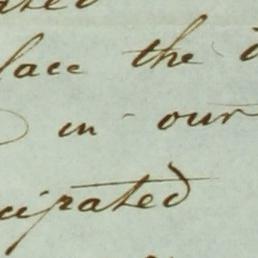 lace the
in our
cipated